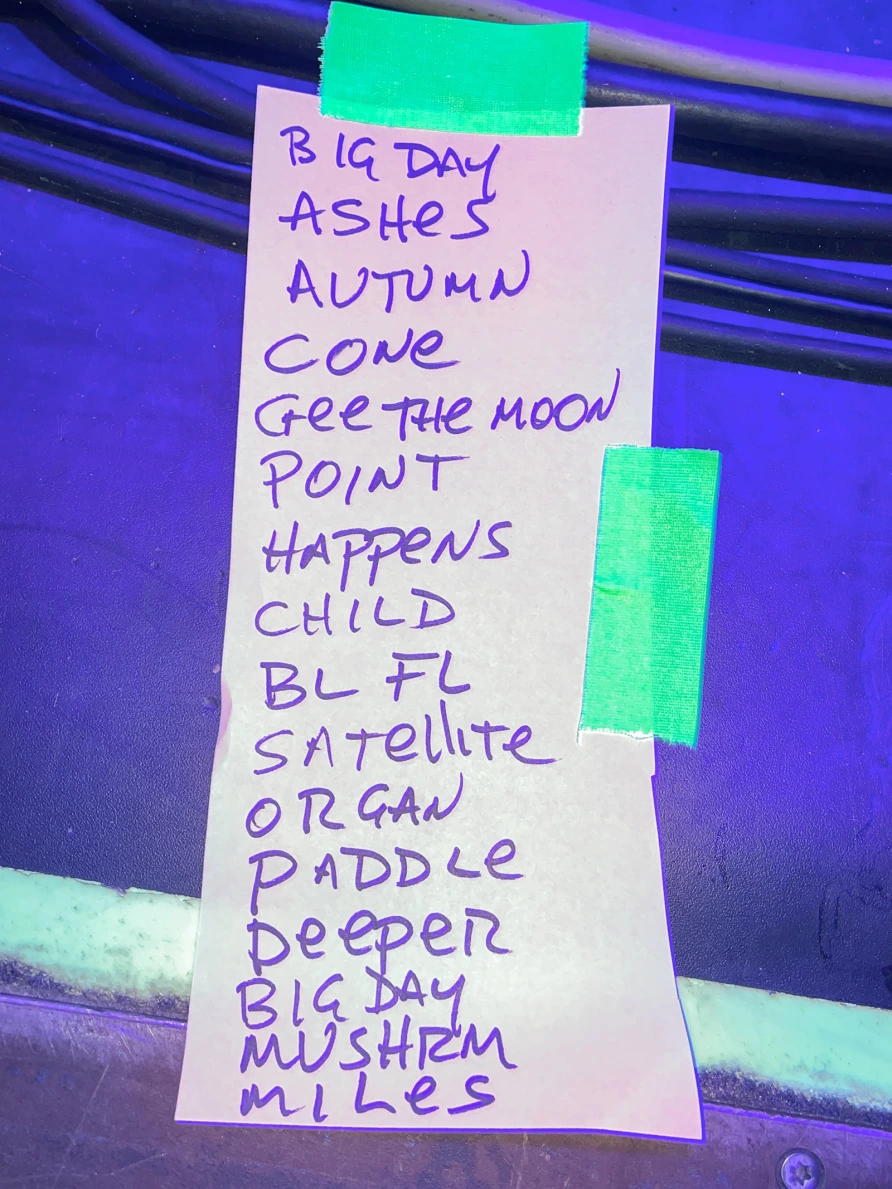 BIG DAY
ASHeS
AUTUMN
CONe
Gee THe MOON
POINT
HAPPeNS
CHILD
BL FL
SATellITe
ORGAN
PADDLe
DeepeR
BIG DAY
MUSHRM
MILeS